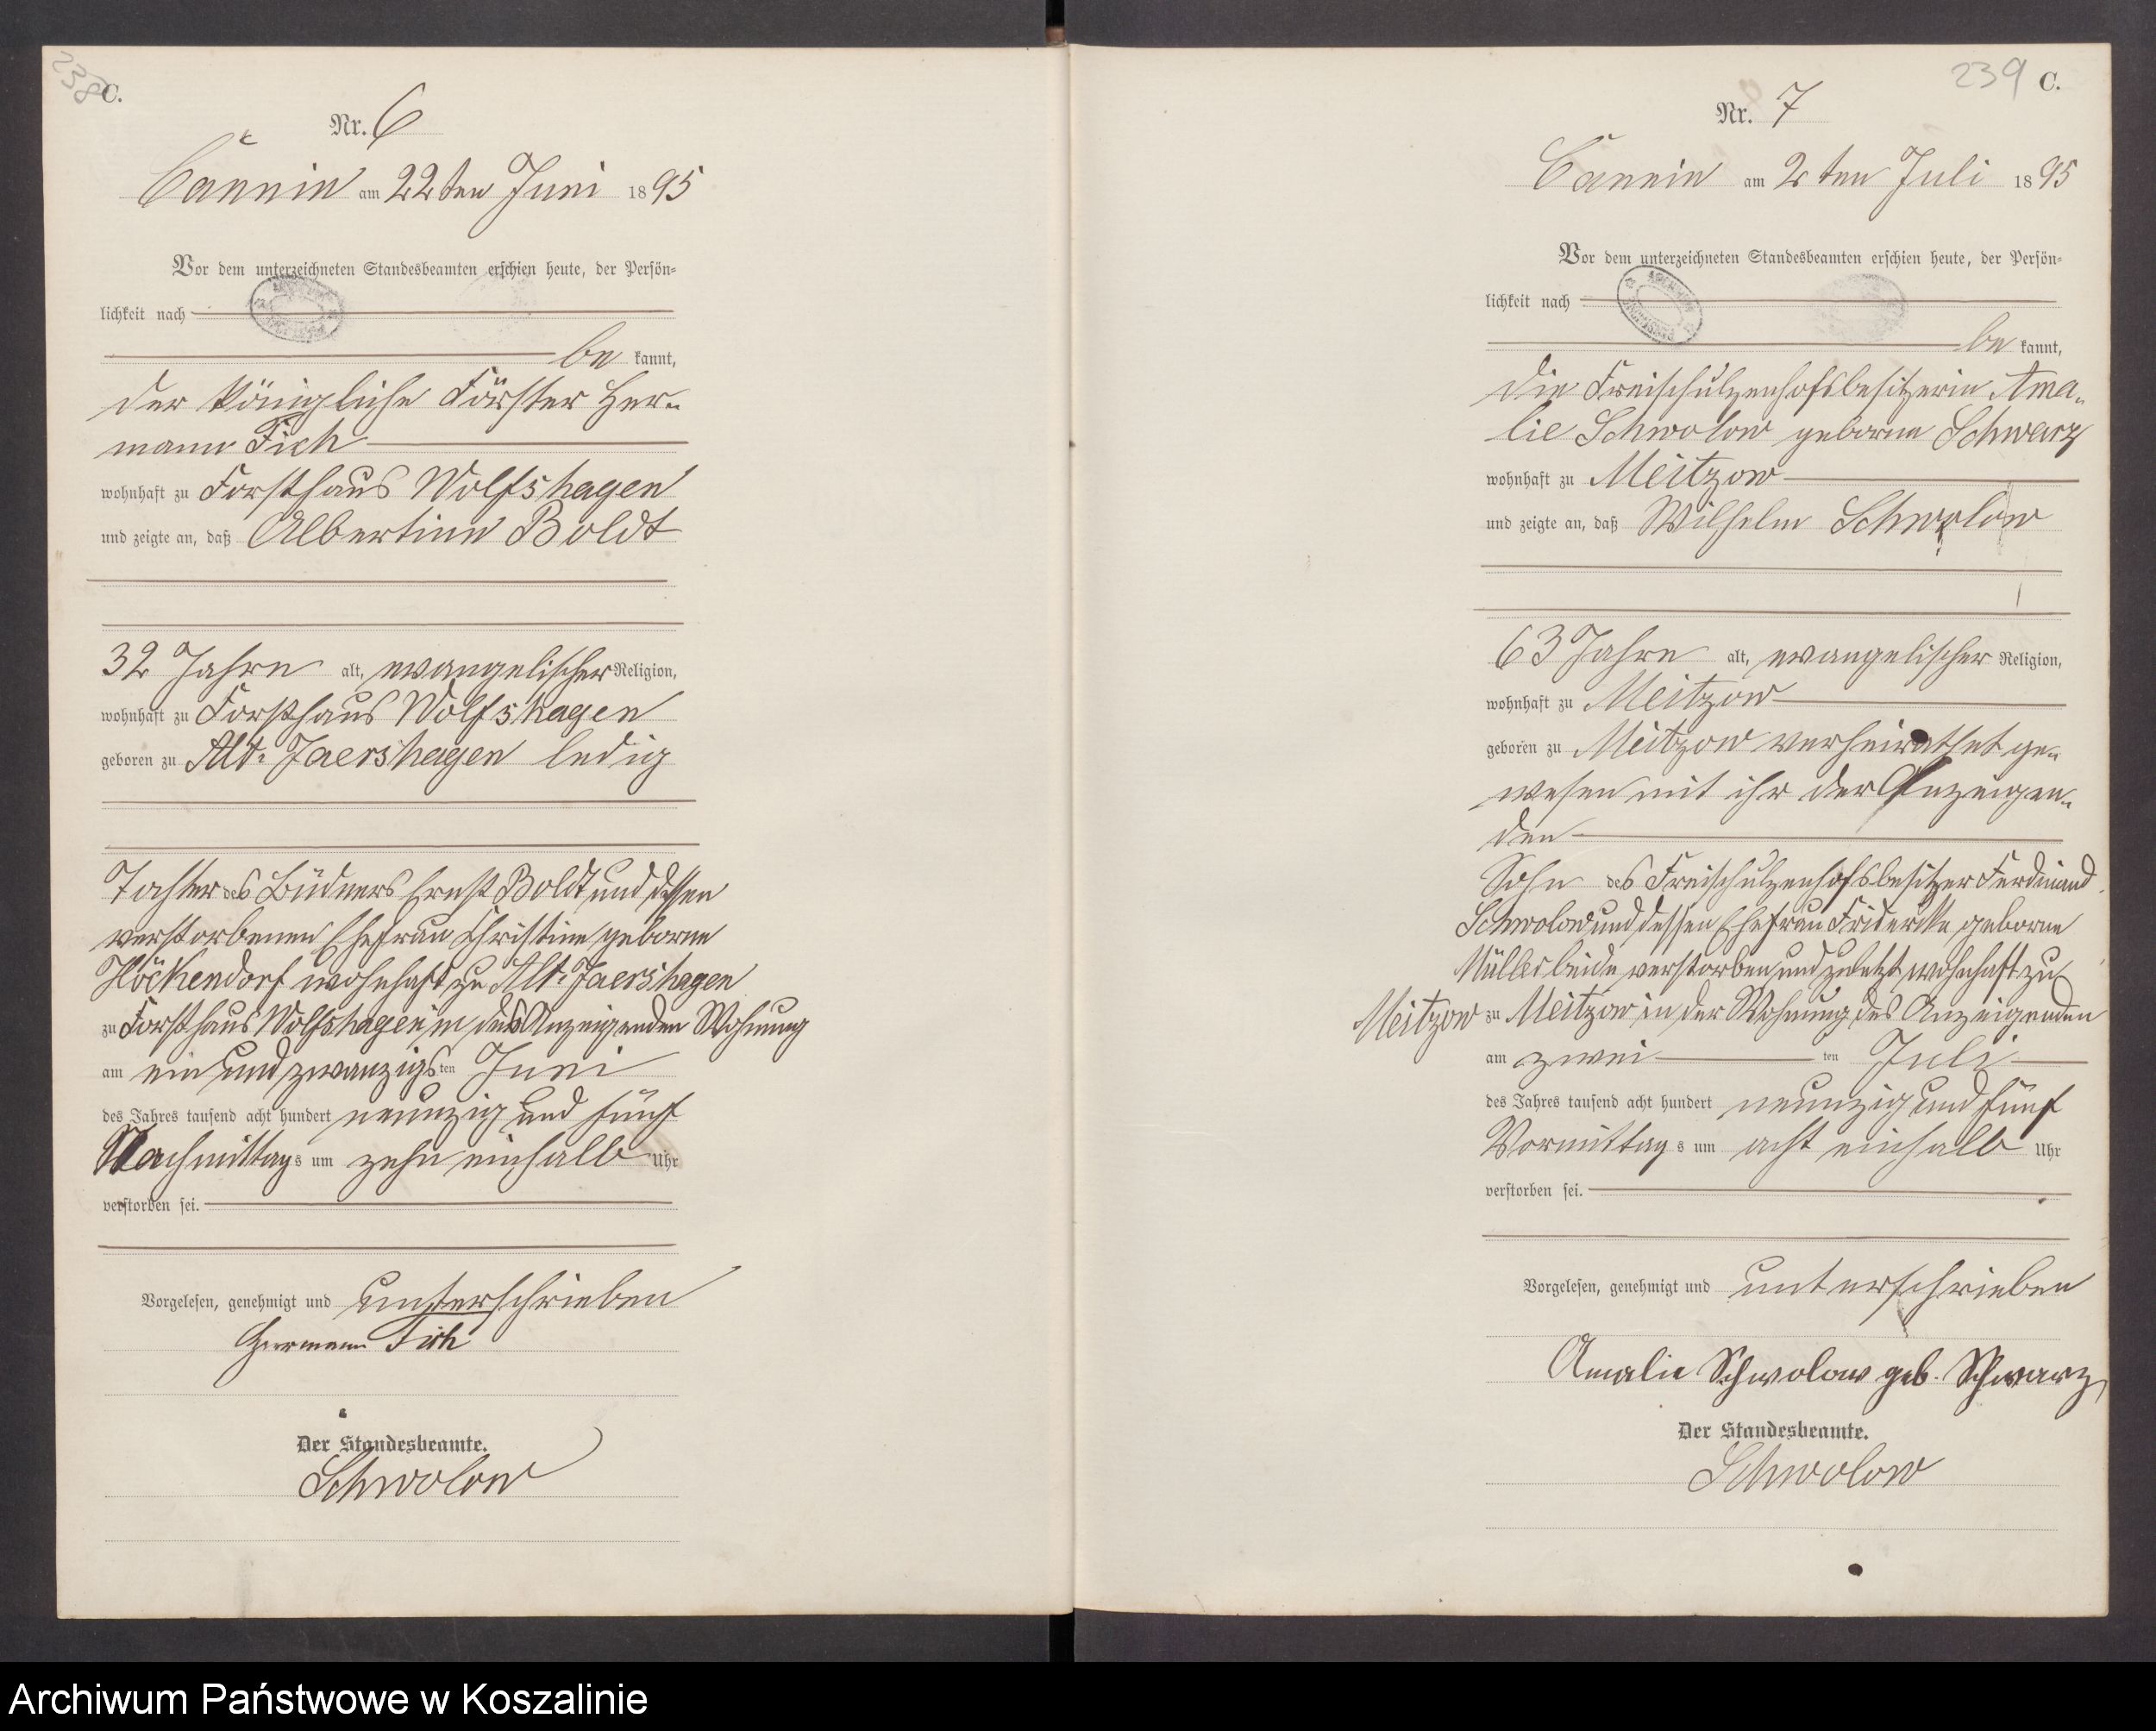 238
C.
Nr. 6
Cannin am 22ten Juni 1895
Vor dem unterzeichneten Standesbeamten erschien heute, der Persön-
lichkeit nach
be kannt,
der Königliche Förster Her-
mann Fich
wohnhaft zu Forsthaus Wolfshagen
und zeigte an, daß Albertine Boldt
32 Jahre alt, evangelischer Religion,
wohnhaft zu Forsthaus Wolfshagen
geboren zu Alt-Jaershagen ledig
Tochter des Büdners Ernst Boldt und dessen
verstorbenen Ehefrau Christine geborne
Höckendorf wohnhaft zu Alt-Jaershagen
zu Forsthaus Wolfshagen in des Anzeigenden Wohnung
am ein und zwanzigsten Juni
des Jahres tausend acht hundert neunzig und fünf
Nachmittags um zehn einhalb Uhr
verstorben sei.
Vorgelesen, genehmigt und unterschrieben
Hermann Fich
Der Standesbeamte.
Schwolow
239 C.
Nr. 7
Cannin am 2ten Juli 1895
Vor dem unterzeichneten Standesbeamten erschien heute, der Persön-
lichkeit nach
be kannt,
die Freischulzenhofsbesitzerin Ama-
lie Schwolow geborne Schwarz
wohnhaft zu Meitzow
und zeigte an, daß Wilhelm Schwolow
63 Jahre alt, evangelischer Religion,
wohnhaft zu Meitzow
geboren zu Meitzow verheirathet ge-
wesen mit ihr der Anzeigen-
den
Sohn des Freischulzenhofsbesitzer Ferdinand
Schwolow und dessen Ehefrau Friderike geborne
Müller beide verstorben und zuletzt wohnhaft zu
Meitzow zu Meitzow in der Wohnung des Anzeigenden
am zwei ten Juli
des Jahres tausend acht hundert neunzig und fünf
Vormittags um acht einhalb Uhr
verstorben sei.
Vorgelesen, genehmigt und unterschrieben
Amalie Schwolow geb. Schwarz
Der Standesbeamte.
Schwolow
Archiwum Państwowe w Koszalinie